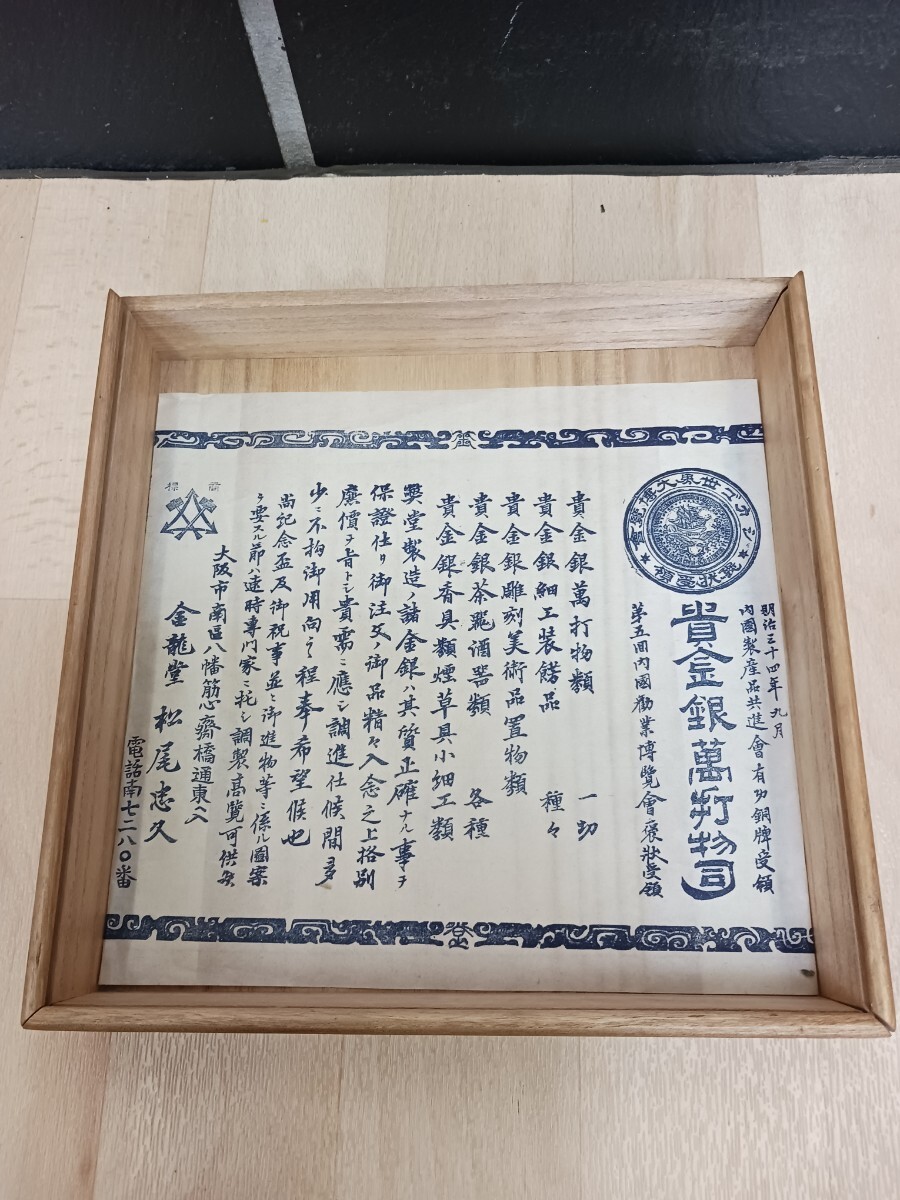 明治三十四年九月
内國製産品共進會有功銅牌受領
貴金銀萬打物司
第五回内國勧業博覧會褒状受領
貴金銀萬打物類 一切
貴金銀細工装餝品 種々
貴金銀雕刻美術品置物類
貴金銀茶器酒器類 各種
貴金銀香具類煙草具小細工類
弊堂製造ノ諸金銀ハ其質正確ナル事ヲ
保證仕リ御注文ノ御品精々入念之上格別
廉價ヲ旨トシ貴需ニ應シ調進仕候間多
少ニ不拘御用向之程奉希望候也
尚記念盃及御祝事並ニ御進物等ニ係ル圖案
ヲ要スル節ハ速時専門家ニ托シ調製髙覧可供候
商標
大阪市南區八幡筋心齋橋通東ヘ入
金龍堂 松尾忠久
電話南七二八〇番